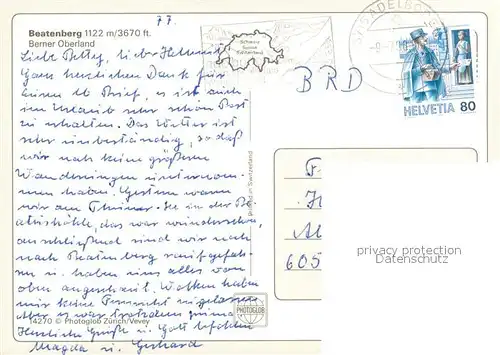 7.7.
Beatenberg 1122 m/3670 ft.
Berner Oberland
Liebe Betty, lieber Hellmut
Ganz herzlichen Dank für
Euren lb Brief, es ist auch
im Urlaub sehr schön Post
zu erhalten. Das Wetter ist
sehr unbeständig, so daß
wir noch keine größeren
Wanderungen unternom-
men haben. Gestern waren
wir am Thuner-See in der Be-
atushöhle, das war wunderschön,
anschließend sind wir noch
nach Beatenberg raufgefah-
ren u. haben uns alles von
oben angeschaut. Wolken haben
wir keine Fernsicht
aber es war trotzdem prima
Herzliche Grüße u. Gott befohlen
Magda u. Gerhard
14270 © Photoglob Zürich/Vevey
PHOTOGLOB
Printed in Switzerland
Schweiz
Suisse
Switzerland
ADELBODEN
BRD
HELVETIA 80
F
H
Al
605
privacy protection
Datenschutz